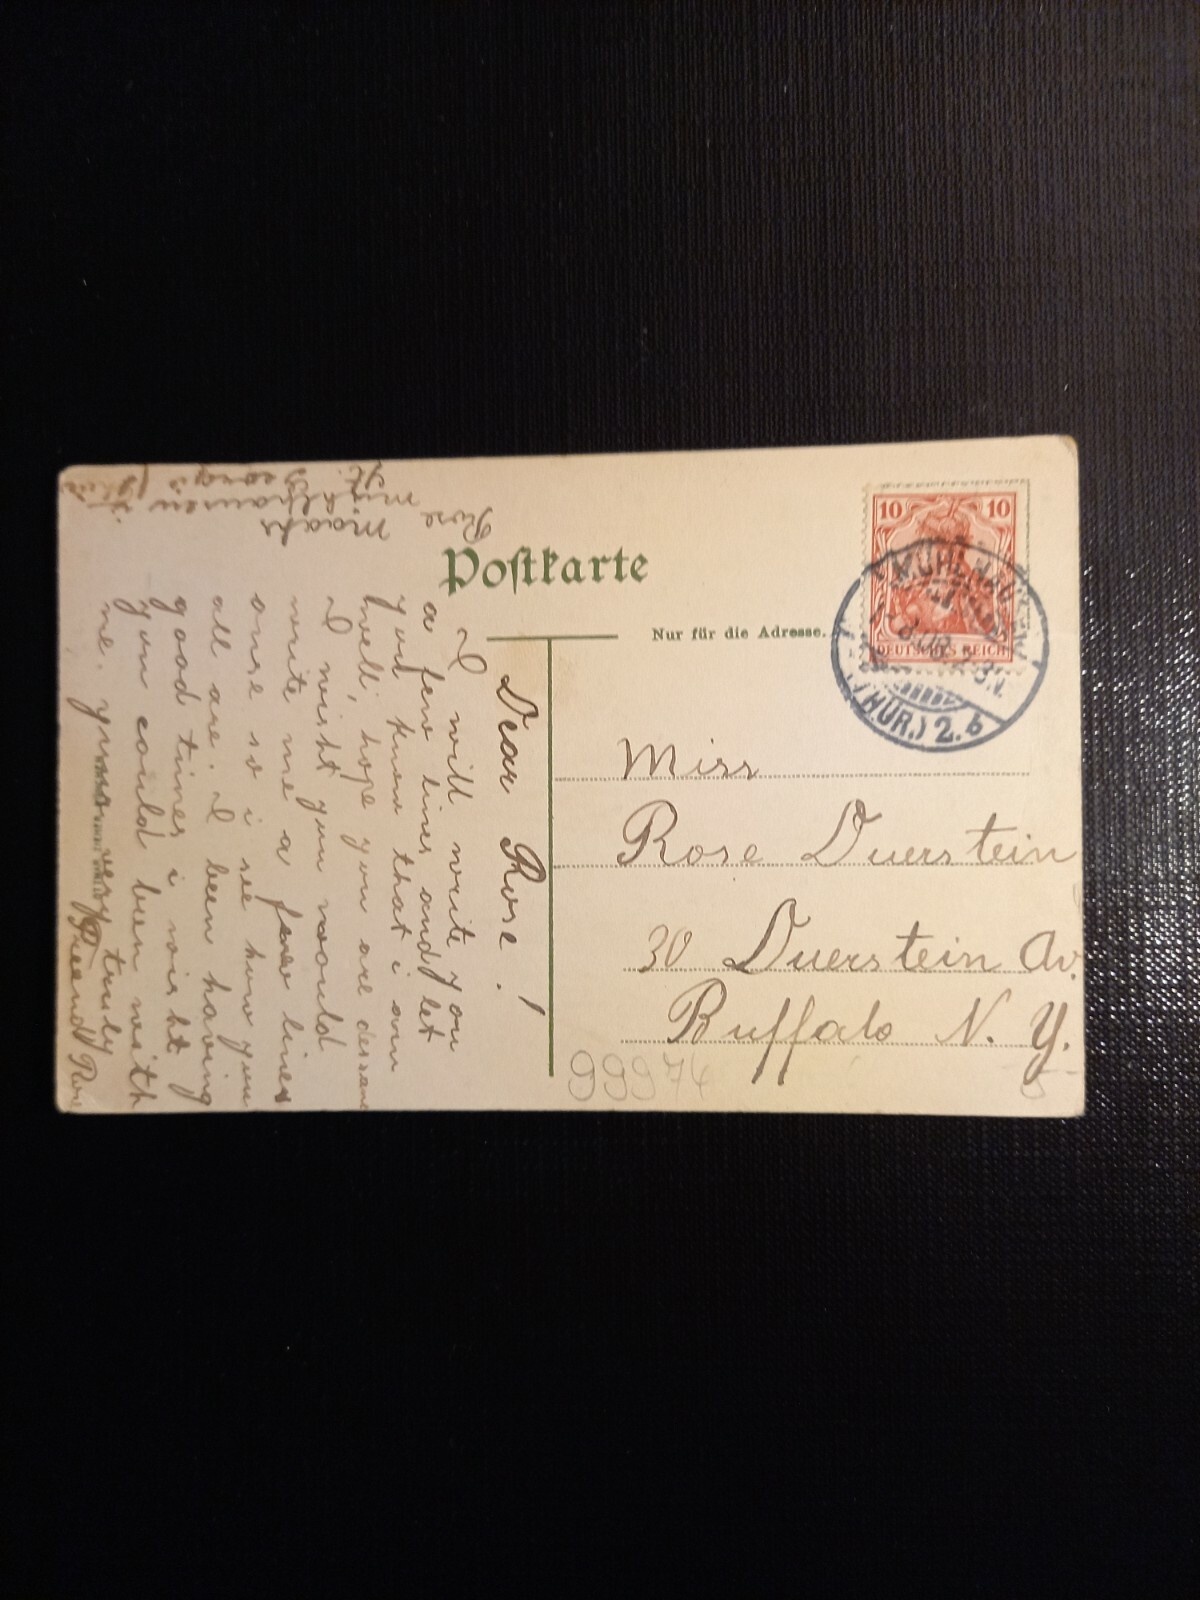 Postkarte
Nur für die Adresse.
10 10
DEUTSCHES REICH
MÜHLHAUSEN
(THÜR.) 2. b
Miss
Rose Duerstein
30 Duerstein Av.
Buffalo N. Y.
99974
Dear Rose!
I will write you
a few lines and let
you know that i am
well, hope you are des same
I wish you would
write me a few lines
once so i see how you
all are. I been having
good times i wisht
you could been with
me. yours very truly
Friend Rose
Rose
Maahs
Mühlhausen i.
St. Georgi